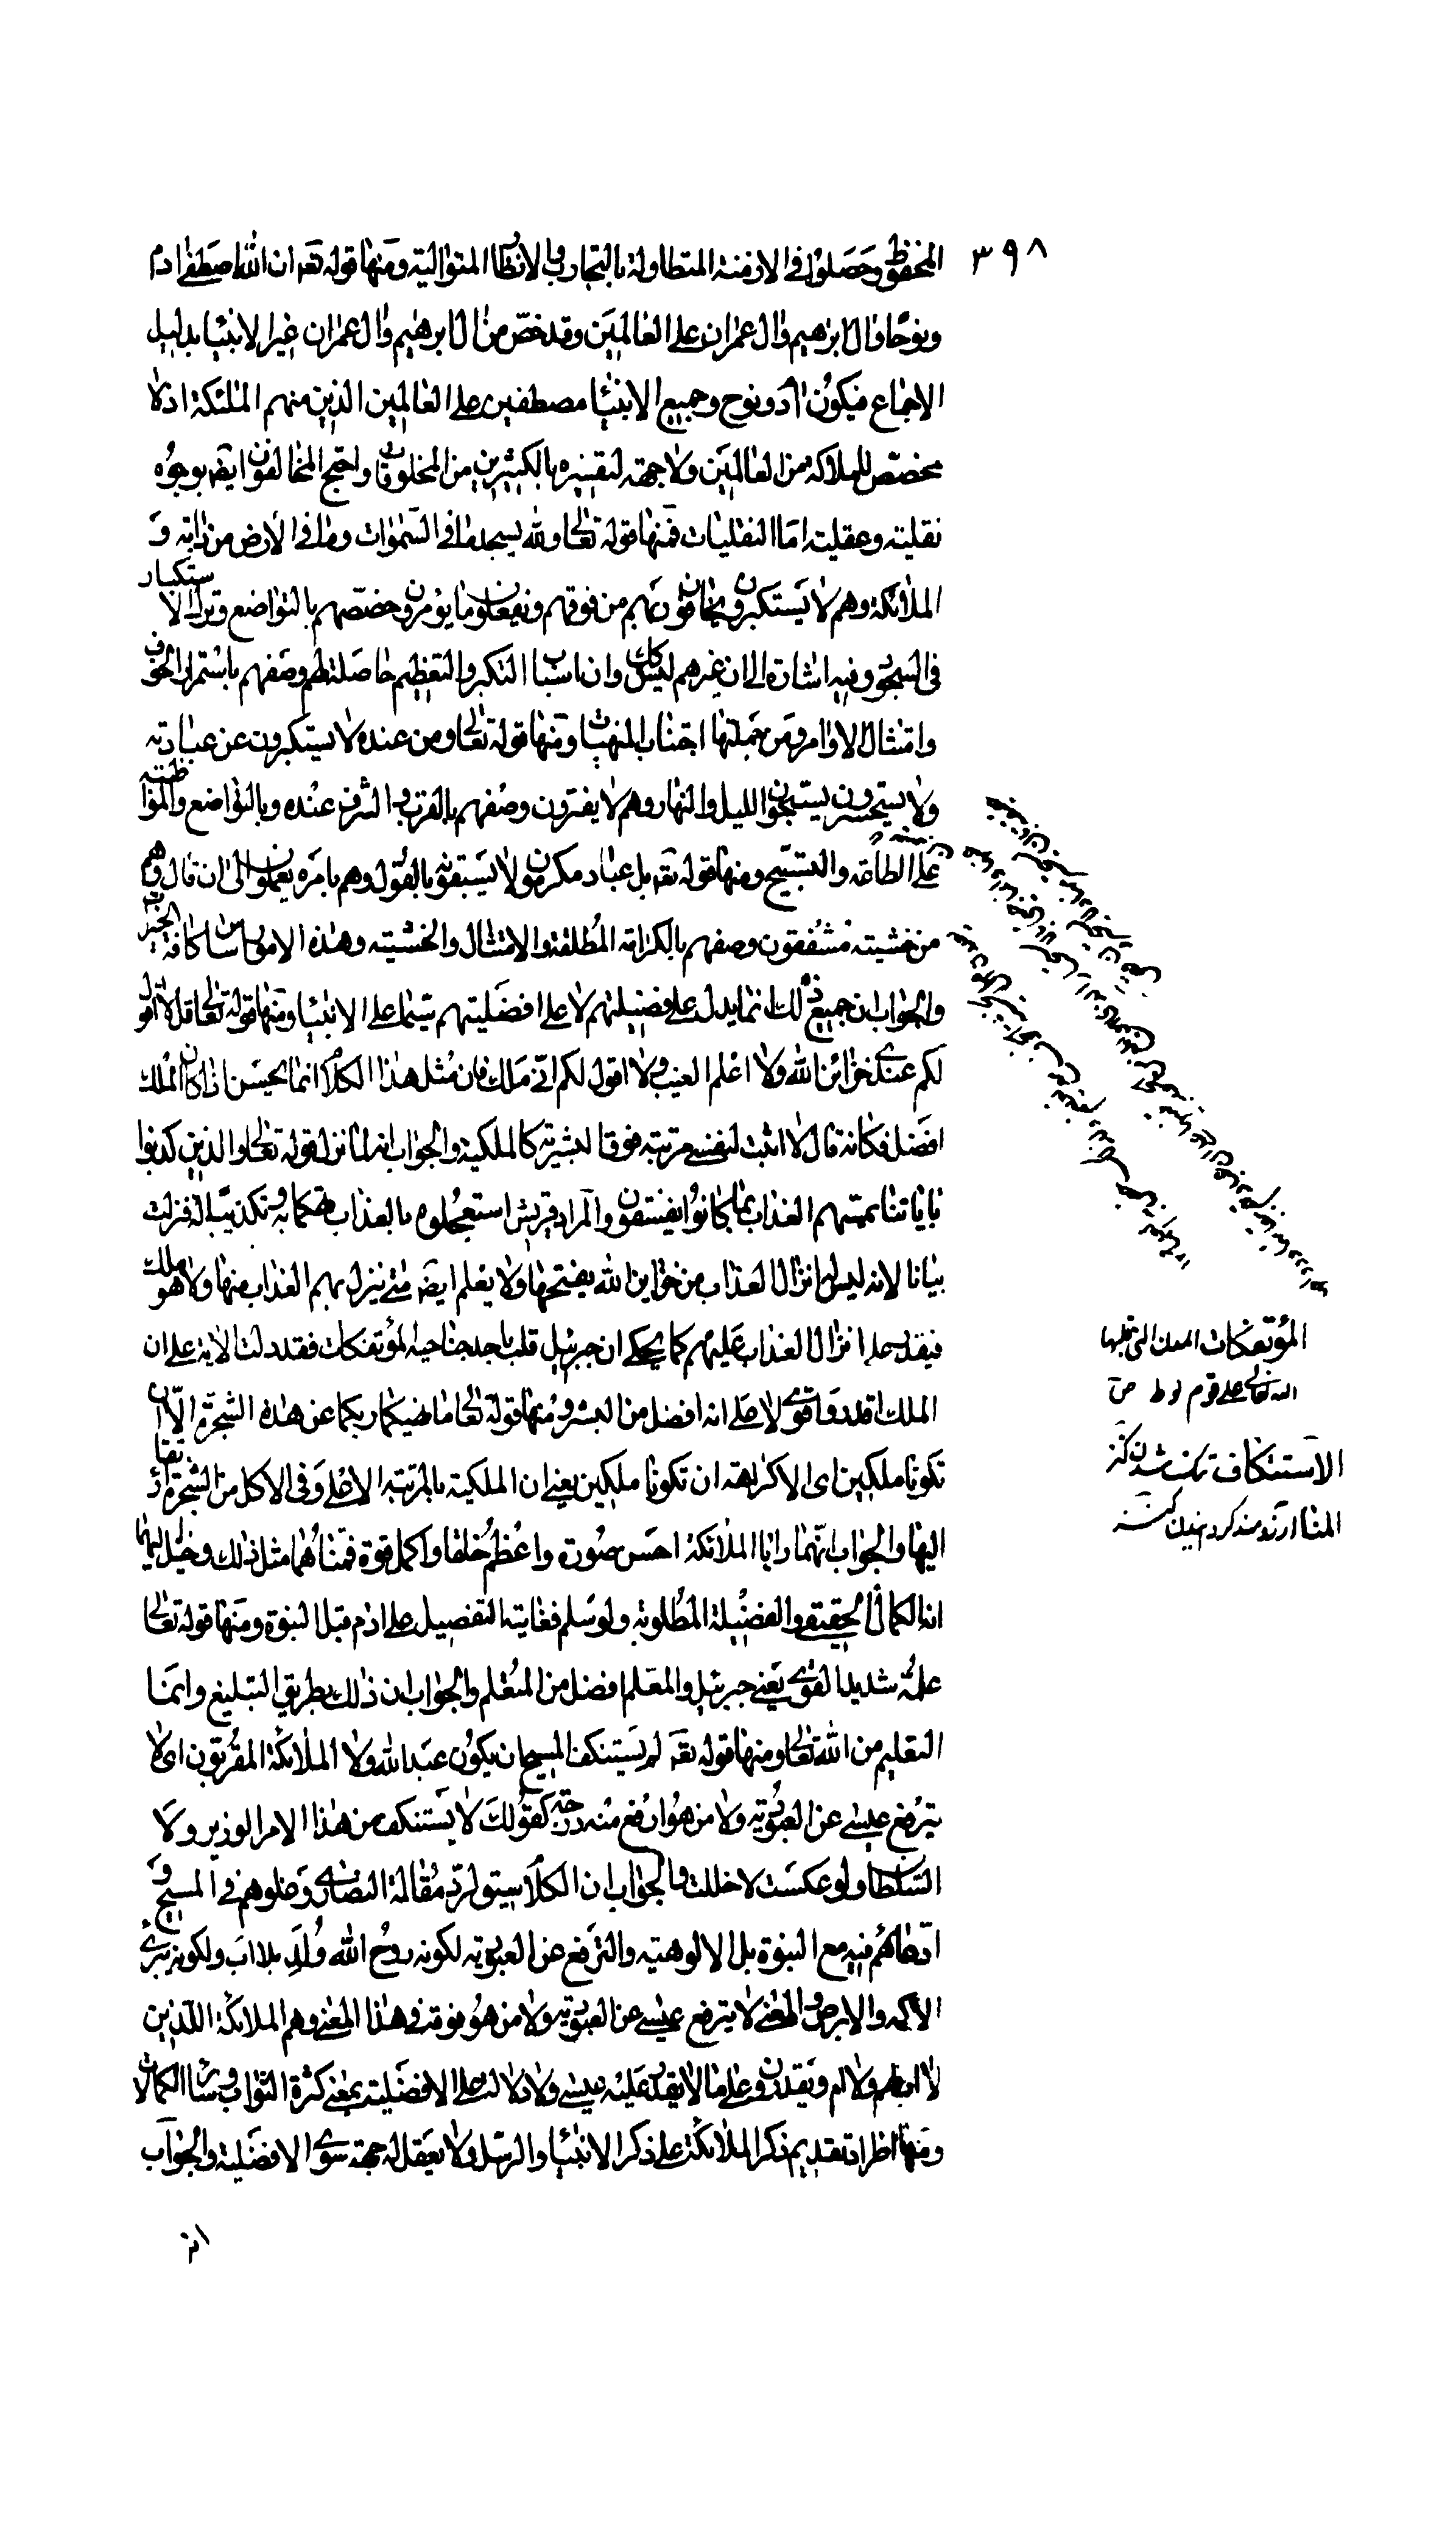 ٣٩٨
المحفوظ وحصلوا في الازمنة المتطاولة بالتجارب والانظار المتوالية ومنها قوله تعه ان الله اصطفى ادم
ونوحا وال ابرهيم وال عمران على العالمين وقد خص من ال ابرهيم وال عمران غير الانبيا بدليل
الاجماع فيكون ادم ونوح وجميع الانبيا مصطفين على العالمين الذين منهم الملئكة اذ لا
مخصص للملائكة من العالمين ولا جهة لتفسيره بالكثيرين من المخلوقات واحتج المخالفون ايضه بوجوه
نقلية وعقلية اما النقليات فمنها قوله تعالى ولله يسجد ما في السموات وما في الارض من دابة و
الملائكة وهم لا يستكبرون يخافون ربهم من فوقهم ويفعلون ما يؤمرون خصصهم بالتواضع وترك الاستكبار
في السجود وفيه اشارة الى ان غيرهم ليس كك وان اسباب التكبر والتعظيم حاصلة لهم وصفهم باستمرار الخوف
وامتثال الاوامر ومن جملتها اجتناب المنهيات ومنها قوله تعالى ومن عنده لا يستكبرون عن عبادته
ولا يستحسرون يسبحون الليل والنهار وهم لا يفترون وصفهم بالقرب والشرف عنده وبالتواضع والمواظبة
على الطاعة والتسبيح ومنها قوله تعه بل عباد مكرمون لا يسبقونه بالقول وهم بامره يعملون الى ان قال وهم
من خشيته مشفقون وصفهم بالكرامة المطلقة والامتثال والخشية وهذه الامور اساس كافة الخيرات
والجواب ان جميع ذلك انما يدل على فضيلتهم لا على افضليتهم سيما على الانبيا ومنها قوله تعالى قل لا اقول
لكم عندي خزائن الله ولا اعلم الغيب ولا اقول لكم اني ملك فان مثل هذا الكلام انما يحسن اذا كان الملك
افضل فكانه قال لا اثبت لنفسي مرتبة فوق البشرية كالملكية والجواب انه لما نزل قوله تعالى والذين كذبوا
باياتنا يمسهم العذاب بما كانوا يفسقون والمراد قريش استعجلوه بالعذاب تهكما به وتكذيبا له فنزلت
بيانا لانه ليس له انزال العذاب من خزاين الله يفتحها ولا يعلم ايضه متى ينزل بهم العذاب منها ولا هو ملك
فيقدر على انزال العذاب عليهم كما يحكى ان جبرئيل قلب باحد جناحيه المؤتفكات فقد دلت الاية على ان
الملك اقدر واقوى لا على انه افضل من البشر ومنها قوله تعالى ما نهيكما ربكما عن هذه الشجرة الا ان
تكونا ملكين اى الا كراهة ان تكونا ملكين يعني ان الملكية بالمرتبة الاعلى وفي الاكل من الشجرة ارتقا
اليها والجواب انهما رايا الملائكة احسن صورة واعظم خلقا واكمل قوة فمناهما مثل ذلك وخيل اليهما
انه الكمال الحقيقي والفضيلة المطلوبة ولو سلم فغايته التفضيل على ادم قبل النبوة ومنها قوله تعالى
علمه شديد القوى يعني جبرئيل والمعلم افضل من المتعلم والجواب ان ذلك بطريق التبليغ وانما
التعليم من الله تعالى ومنها قوله تعه لن يستنكف المسيح ان يكون عبد الله ولا الملائكة المقربون اى لا
يترفع عيسى عن العبودية ولا من هو ارفع منه درجة كقولك لا يستنكف من هذا الامر الوزير ولا
السلطان ولو عكست لاخللت والجواب ان الكلام سيق لرد مقالة النصارى وغلوهم في المسيح و
ادعائهم فيه مع النبوة بل الالوهية والترفع عن العبودية لكونه روح الله ولد بلا اب ولكونه يبرئ
الاكمه والابرص والمعنى لا يترفع عيسى عن العبودية ولا من هو فوقه في هذا المعنى وهم الملائكة الذين
لا اب لهم ولا ام ويقدرون على ما لا يقدر عليه عيسى ولا دلالة على الافضلية بمعنى كثرة الثواب وسائر الكمالات
ومنها اطراد تقديم ذكر الملائكة على ذكر الانبيا والرسل ولا يعقل له جهة سوى الافضلية والجواب
المؤتفكات المدن التي قلبها
الله تعالى على قوم لوط ص
الاستنكاف ننك شدن كنز
المنا ارزومند كردانيدن كنز
انه